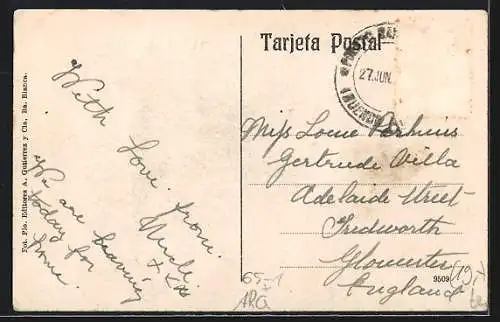 Tarjeta Postal
27 JUN.
With
love from
Uncle
We are leaving
today for
home.
Miss Louie
Gertrude Villa
Adelaide Street
Tredworth
Gloucester
England
Fot. Flo. Editores A. Gutierrez y Cia., Ba. Blanca.
9509